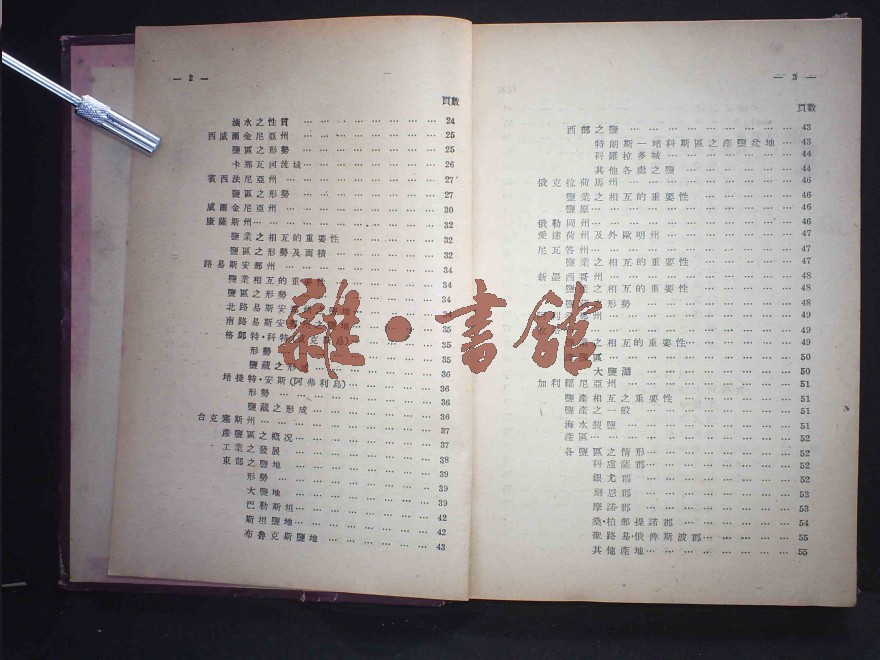 — 2 —
頁數
滷水之性質 … … … … … … … … 24
西威爾金尼亞州 … … … … … … … … 25
鹽區之形勢 … … … … … … … … 25
卡那瓦河流域 … … … … … … … … 26
賓西法尼亞州 … … … … … … … … 27
鹽區之形勢 … … … … … … … … 27
威爾金尼亞州 … … … … … … … … 30
康薩斯州 … … … … … … … … 32
鹽業之相互的重要性 … … … … … … 32
鹽區之形勢及面積 … … … … … … 32
路易斯安那州 … … … … … … … … 34
鹽業相互的重要性 … … … … … … 34
鹽區之形勢 … … … … … …
北路易斯安那
南路易斯安 地 35
格郎特·科特 35
形勢 35
鹽藏之形成 36
培提特·安斯(阿弗利島) … … … … … 36
形勢 … … … … … … … … 36
鹽藏之形成 … … … … … … … 36
台克塞斯州 … … … … … … … … 37
產鹽區之概況 … … … … … … … 37
工業之發展 … … … … … … … … 38
東部之鹽地 … … … … … … … … 39
形勢 … … … … … … … … 39
大鹽地 … … … … … … … … 39
巴勒斯坦 … … … … … … … … 42
斯坦鹽地 … … … … … … … … 42
布魯克斯鹽地 … … … … … … … 43
— 3 —
頁數
西部之鹽 … … … … … … … … 43
特朗斯—培科斯區之產鹽盆地 … … 44
科羅拉多城 … … … … … … … … 44
其他各處之鹽 … … … … … … … 44
俄克拉荷馬州 … … … … … … … … 46
鹽業之相互的重要性 … … … … … … 46
鹽原 … … … … … … … … 46
俄勒岡州 … … … … … … … … 47
愛達荷州及外歐明州 … … … … … … 47
尼瓦答州 … … … … … … … … 47
鹽業之相互的重要性 … … … … … … 47
新墨西哥州 … … … … … … … … 48
鹽業之相互的重要性 … … … … … … 48
形勢 … … … … … … 48
… … … … … … 49
… … … … … … 49
鹽業之相互的重要性 … … … … … 49
產鹽區 … … … … … … … … 50
大鹽湖 … … … … … … … … 50
加利福尼亞州 … … … … … … … … 51
鹽產相互之重要性 … … … … … … 51
鹽產之一般 … … … … … … … … 51
海水製鹽 … … … … … … … … 51
產區 … … … … … … … … 52
各鹽區之情形 … … … … … … … 52
科盧薩郡 … … … … … … … … 52
銀尤郡 … … … … … … … … 52
刻恩郡 … … … … … … … … 53
摩諾郡 … … … … … … … … 53
桑·柏那提諾郡 … … … … … … … 54
聖路易·俄俾斯波郡 … … … … … … 55
其他產地 … … … … … … … … 55
雜·書館